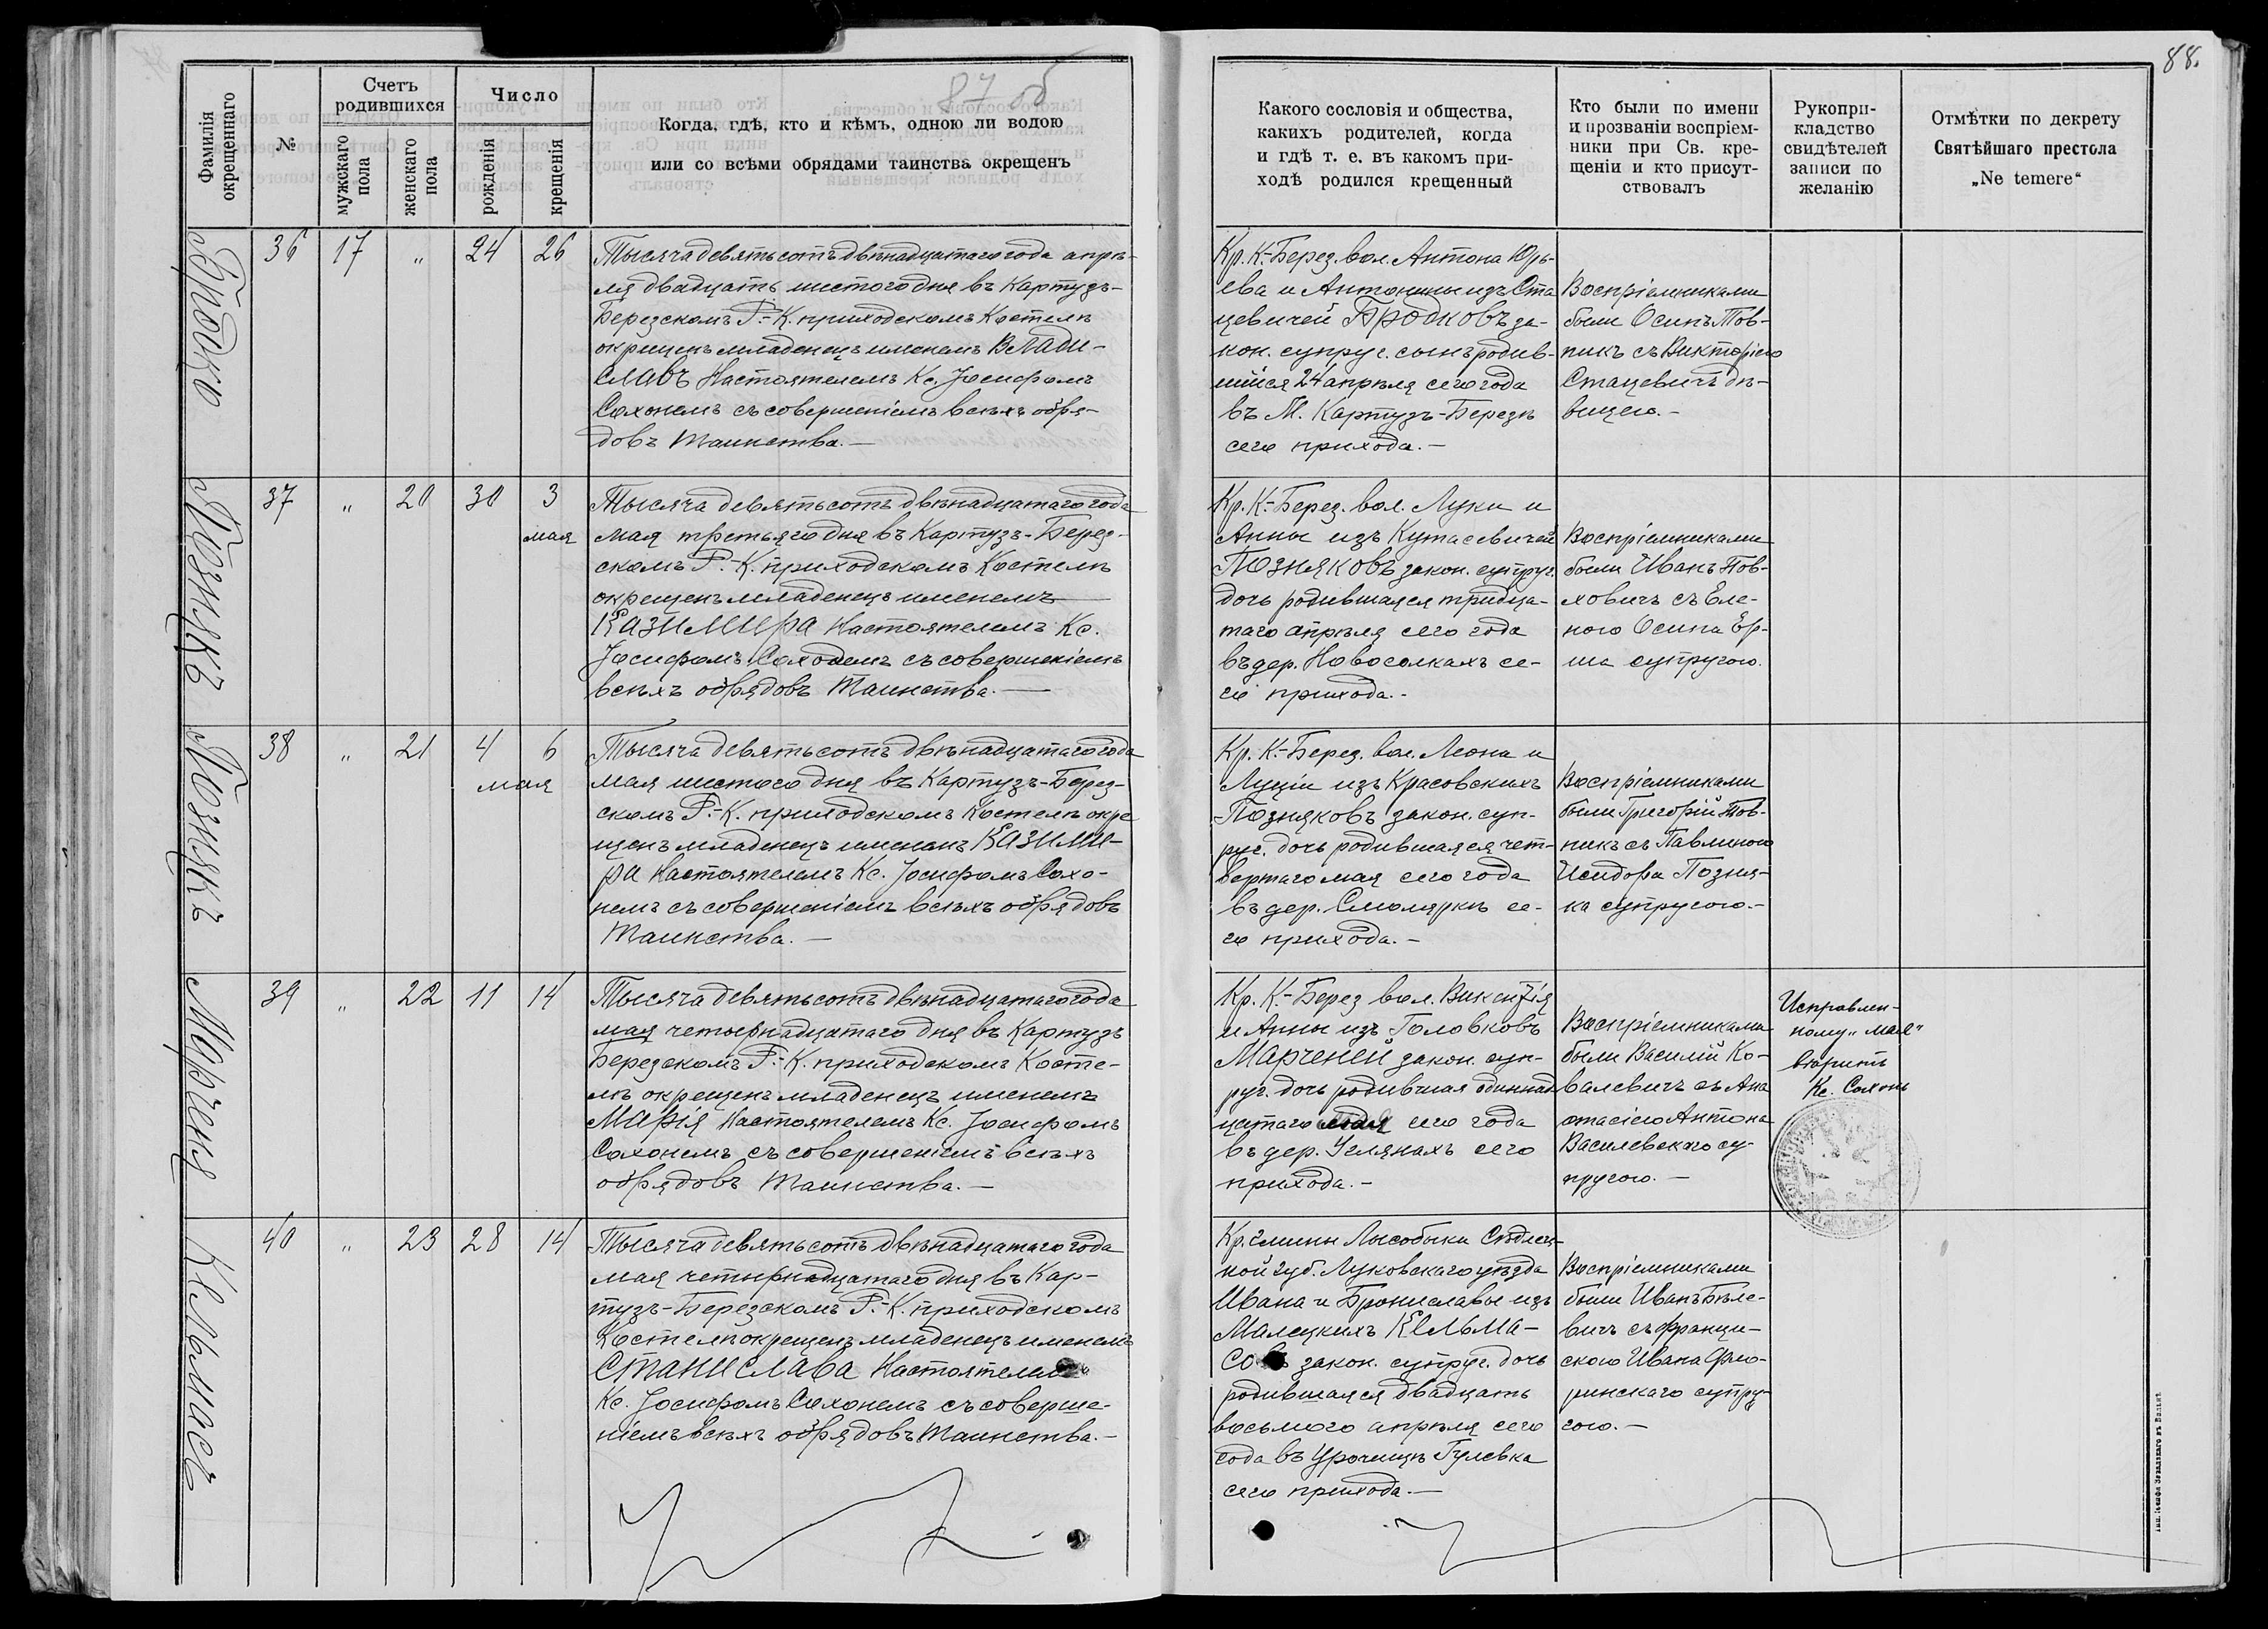 87 об
88.
Фамилія
окрещеннаго
№
Счетъ
родившихся
мужскаго
пола
женскаго
пола
Число
рожденія
крещенія
Когда, гдѣ, кто и кѣмъ, одною ли водою
или со всѣми обрядами таинства окрещенъ
Какого сословія и общества,
какихъ родителей, когда
и гдѣ т. е. въ какомъ при-
ходѣ родился крещенный
Кто были по имени
и прозваніи воспріем-
ники при Св. кре-
щеніи и кто присут-
ствовалъ
Рукопри-
кладство
свидѣтелей
записи по
желанію
Отмѣтки по декрету
Святѣйшаго престола
„Ne temere“
Бродко
36 17 " 24 26
Тысяча девятьсотъ двѣнадцатаго года апрѣ-
ля двадцать шестого дня въ Картузъ-
Березскомъ Р.-К. приходскомъ Костелѣ
окрещенъ младенецъ именемъ Влади-
славъ Настоятелемъ Кс. Іосифомъ
Сахонемъ съ совершеніемъ всѣхъ обря-
довъ Таинства.—
Кр. К.-Берез. вол. Антона Юрь-
ева и Антонины изъ Ста
цевичей Бродковъ за-
кон. супруг. сынъ родив-
шійся 24 апрѣля сего года
въ М. Картузъ-Березѣ
сего прихода.—
Воспріемниками
были Осипъ Тов-
пикъ съ Викторіею
Стацевичъ дѣ-
вицею.—
Познякъ
37 " 20 30 3
мая
Тысяча девятьсотъ двѣнадцатаго года
мая третьяго дня въ Картузъ-Берез-
скомъ Р.-К. приходскомъ Костелѣ
окрещенъ младенецъ именемъ
Казимира Настоятелемъ Кс.
Іосифомъ Сахонемъ съ совершеніемъ
всѣхъ обрядовъ Таинства.—
Кр. К.-Берез. вол. Луки и
Анны изъ Кутасевичей
Позняковъ закон. супруг.
дочь родившаяся тридца-
таго апрѣля сего года
въ дер. Новоселкахъ се-
го прихода.-
Воспріемниками
были Иванъ Пов-
ховичъ съ Еле-
ною Осипа Ер-
ша супругою.
Познякъ
38 " 21 4 6
мая
Тысяча девятьсотъ двѣнадцатаго года
мая шестого дня въ Картузъ-Берез-
скомъ Р.-К. приходскомъ Костелѣ окре
щенъ младенецъ именемъ Казими-
ра Настоятелемъ Кс. Іосифомъ Сахо-
немъ съ совершеніемъ всѣхъ обрядовъ
Таинства.—
Кр. К.-Берез. вол. Леона и
Луціи изъ Красовскихъ
Позняковъ закон. суп-
руг. дочь родившаяся чет-
вертаго мая сего года
въ дер. Смолякѣ се-
го прихода.—
Воспріемниками
были Григорій Тов-
пикъ съ Павлиною
Исидора Позня-
ка супругою.—
Марченя
39 " 22 11 14
Тысяча девятьсотъ двѣнадцатаго года
мая четырнадцатаго дня въ Картузъ
Березскомъ Р.-К. приходскомъ Косте-
лѣ окрещенъ младенецъ именемъ
Марія Настоятелемъ Кс. Іосифомъ
Сахонемъ съ совершеніемъ всѣхъ
обрядовъ Таинства.—
Кр. К.-Берез вол. Викентія
и Анны изъ Головковъ
Марченей закон. суп-
руг. дочь родившая одиннад
цатаго мая сего года
въ дер. Углянахъ сего
прихода.—
Воспріемниками
были Василій Ко-
валевичъ съ Ана
стасіею Антона
Василевскаго су-
пругою.—
Исправлен-
ному „мая“
вѣрить
Кс. Сахонь
Кельмасъ
40 " 23 28 14
Тысяча девятьсотъ двѣнадцатаго года
мая четырнадцатаго дня въ Кар-
тузъ-Березскомъ Р.-К. приходскомъ
Костелѣ окрещенъ младенецъ именемъ
Станислава Настоятелемъ
Кс. Іосифомъ Сахонемъ съ соверше-
ніемъ всѣхъ обрядовъ Таинства.—
Кр. гмины Лысобыки Сѣдлец-
кой губ. Луковскаго уѣзда
Ивана и Брониславы изъ
Малецкихъ Кельма-
совъ закон. супруг. дочь
родившаяся двадцать
восьмого апрѣля сего
года въ Урочищѣ Гулевка
сего прихода.—
Воспріемниками
были Иванъ Бѣле-
вичъ съ Франци-
скою Ивана Фло-
ринскаго супру-
гою.—